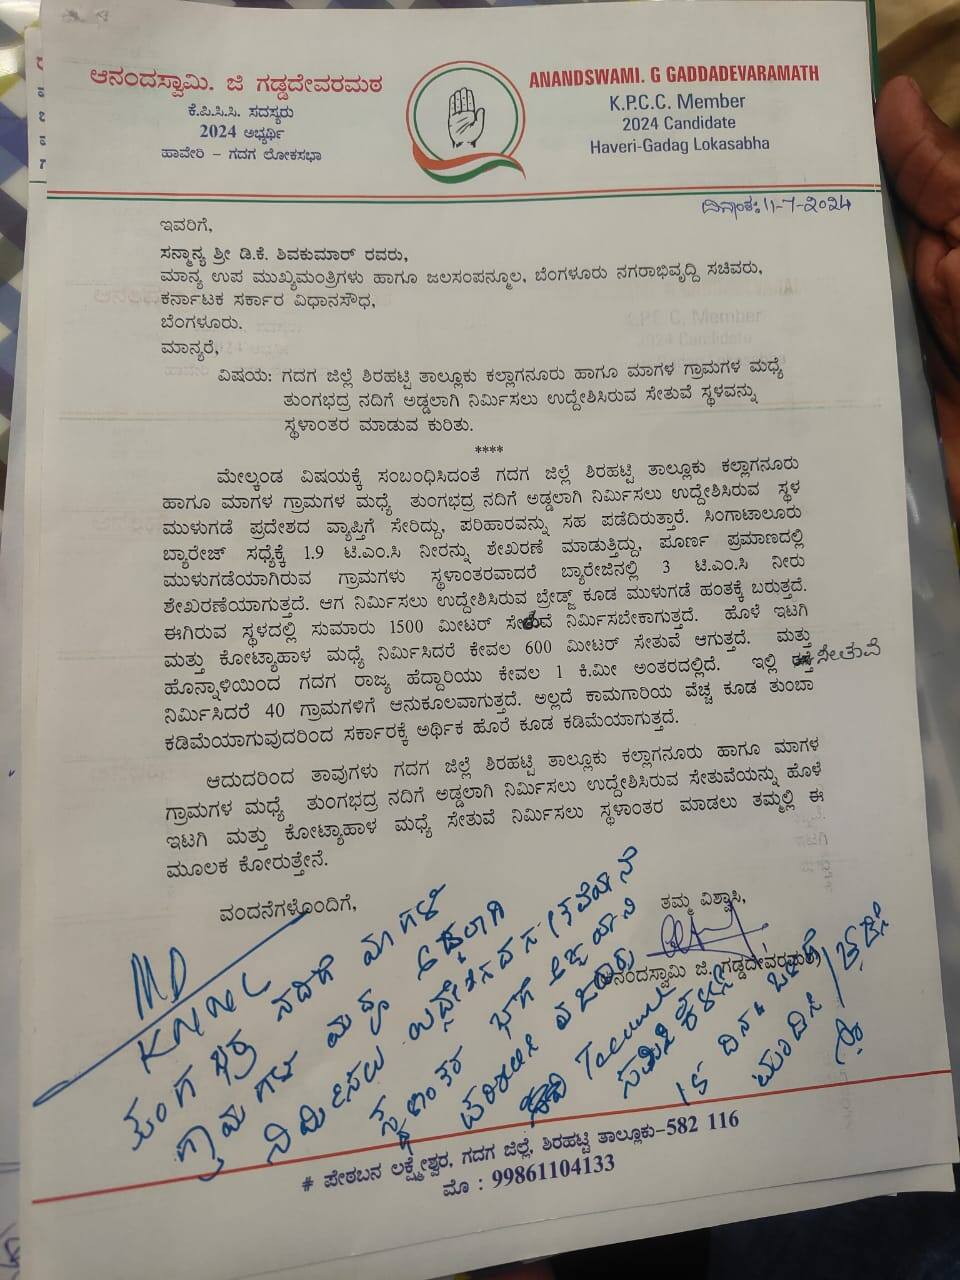 ಆನಂದಸ್ವಾಮಿ. ಜಿ ಗಡ್ಡದೇವರಮಠ
ಕೆ.ಪಿ.ಸಿ.ಸಿ. ಸದಸ್ಯರು
2024 ಅಭ್ಯರ್ಥಿ
ಹಾವೇರಿ – ಗದಗ ಲೋಕಸಭಾ
ANANDSWAMI. G GADDADEVARAMATH
K.P.C.C. Member
2024 Candidate
Haveri-Gadag Lokasabha
ದಿನಾಂಕ: 11-7-2024
ಇವರಿಗೆ,
ಸನ್ಮಾನ್ಯ ಶ್ರೀ ಡಿ.ಕೆ. ಶಿವಕುಮಾರ್ ರವರು,
ಮಾನ್ಯ ಉಪ ಮುಖ್ಯಮಂತ್ರಿಗಳು ಹಾಗೂ ಜಲಸಂಪನ್ಮೂಲ, ಬೆಂಗಳೂರು ನಗರಾಭಿವೃದ್ದಿ ಸಚಿವರು,
ಕರ್ನಾಟಕ ಸರ್ಕಾರ ವಿಧಾನಸೌಧ,
ಬೆಂಗಳೂರು.
ಮಾನ್ಯರೆ,
ವಿಷಯ: ಗದಗ ಜಿಲ್ಲೆ ಶಿರಹಟ್ಟಿ ತಾಲ್ಲೂಕು ಕಲ್ಲಾಗನೂರು ಹಾಗೂ ಮಾಗಳ ಗ್ರಾಮಗಳ ಮಧ್ಯೆ
ತುಂಗಭದ್ರ ನದಿಗೆ ಅಡ್ಡಲಾಗಿ ನಿರ್ಮಿಸಲು ಉದ್ದೇಶಿಸಿರುವ ಸೇತುವೆ ಸ್ಥಳವನ್ನು
ಸ್ಥಳಾಂತರ ಮಾಡುವ ಕುರಿತು.
****
ಮೇಲ್ಕಂಡ ವಿಷಯಕ್ಕೆ ಸಂಬಂಧಿಸಿದಂತೆ ಗದಗ ಜಿಲ್ಲೆ ಶಿರಹಟ್ಟಿ ತಾಲ್ಲೂಕು ಕಲ್ಲಾಗನೂರು
ಹಾಗೂ ಮಾಗಳ ಗ್ರಾಮಗಳ ಮಧ್ಯೆ ತುಂಗಭದ್ರ ನದಿಗೆ ಅಡ್ಡಲಾಗಿ ನಿರ್ಮಿಸಲು ಉದ್ದೇಶಿಸಿರುವ ಸ್ಥಳ
ಮುಳುಗಡೆ ಪ್ರದೇಶದ ವ್ಯಾಪ್ತಿಗೆ ಸೇರಿದ್ದು, ಪರಿಹಾರವನ್ನು ಸಹ ಪಡೆದಿರುತ್ತಾರೆ. ಸಿಂಗಾಟಾಲೂರು
ಬ್ಯಾರೇಜ್ ಸಧ್ಯಕ್ಕೆ 1.9 ಟಿ.ಎಂ.ಸಿ ನೀರನ್ನು ಶೇಖರಣೆ ಮಾಡುತ್ತಿದ್ದು, ಪೂರ್ಣ ಪ್ರಮಾಣದಲ್ಲಿ
ಮುಳುಗಡೆಯಾಗಿರುವ ಗ್ರಾಮಗಳು ಸ್ಥಳಾಂತರವಾದರೆ ಬ್ಯಾರೇಜಿನಲ್ಲಿ 3 ಟಿ.ಎಂ.ಸಿ ನೀರು
ಶೇಖರಣೆಯಾಗುತ್ತದೆ. ಆಗ ನಿರ್ಮಿಸಲು ಉದ್ದೇಶಿಸಿರುವ ಬ್ರೀಡ್ಜ್ ಕೂಡ ಮುಳುಗಡೆ ಹಂತಕ್ಕೆ ಬರುತ್ತದೆ.
ಈಗಿರುವ ಸ್ಥಳದಲ್ಲಿ ಸುಮಾರು 1500 ಮೀಟರ್ ಸೇತುವೆ ನಿರ್ಮಿಸಬೇಕಾಗುತ್ತದೆ. ಹೊಳೆ ಇಟಗಿ
ಮತ್ತು ಕೋಟ್ಯಾಹಾಳ ಮಧ್ಯೆ ನಿರ್ಮಿಸಿದರೆ ಕೇವಲ 600 ಮೀಟರ್ ಸೇತುವೆ ಆಗುತ್ತದೆ. ಮತ್ತು
ಹೊನ್ನಾಳಿಯಿಂದ ಗದಗ ರಾಜ್ಯ ಹೆದ್ದಾರಿಯು ಕೇವಲ 1 ಕಿ.ಮೀ ಅಂತರದಲ್ಲಿದೆ. ಇಲ್ಲಿ ಸೇತುವೆ
ನಿರ್ಮಿಸಿದರೆ 40 ಗ್ರಾಮಗಳಿಗೆ ಆನುಕೂಲವಾಗುತ್ತದೆ. ಅಲ್ಲದೆ ಕಾಮಗಾರಿಯ ವೆಚ್ಚ ಕೂಡ ತುಂಬಾ
ಕಡಿಮೆಯಾಗುವುದರಿಂದ ಸರ್ಕಾರಕ್ಕೆ ಅರ್ಥಿಕ ಹೊರೆ ಕೂಡ ಕಡಿಮೆಯಾಗುತ್ತದೆ.
ಆದುದರಿಂದ ತಾವುಗಳು ಗದಗ ಜಿಲ್ಲೆ ಶಿರಹಟ್ಟಿ ತಾಲ್ಲೂಕು ಕಲ್ಲಾಗನೂರು ಹಾಗೂ ಮಾಗಳ
ಗ್ರಾಮಗಳ ಮಧ್ಯೆ ತುಂಗಭದ್ರ ನದಿಗೆ ಅಡ್ಡಲಾಗಿ ನಿರ್ಮಿಸಲು ಉದ್ದೇಶಿಸಿರುವ ಸೇತುವೆಯನ್ನು ಹೊಳೆ
ಇಟಗಿ ಮತ್ತು ಕೋಟ್ಯಾಹಾಳ ಮಧ್ಯೆ ಸೇತುವೆ ನಿರ್ಮಿಸಲು ಸ್ಥಳಾಂತರ ಮಾಡಲು ತಮ್ಮಲ್ಲಿ ಈ
ಮೂಲಕ ಕೋರುತ್ತೇನೆ.
ವಂದನೆಗಳೊಂದಿಗೆ,
ತಮ್ಮ ವಿಶ್ವಾಸಿ,
(ಆನಂದಸ್ವಾಮಿ ಜಿ. ಗಡ್ಡದೇವರಮಠ)
MD
KNNL
ತುಂಗಭದ್ರ ನದಿಗೆ ಮಾಗಳ
ಗ್ರಾಮಗಳ ಮಧ್ಯೆ ಅಡ್ಡಲಾಗಿ
ನಿರ್ಮಿಸಲು ಉದ್ದೇಶಿಸಿದ
ಸ್ಥಳಾಂತರ
# ಪೇಠಬನ ಲಕ್ಷ್ಮೇಶ್ವರ, ಗದಗ ಜಿಲ್ಲೆ, ಶಿರಹಟ್ಟಿ ತಾಲ್ಲೂಕು-582 116
ಮೊ : 99861104133